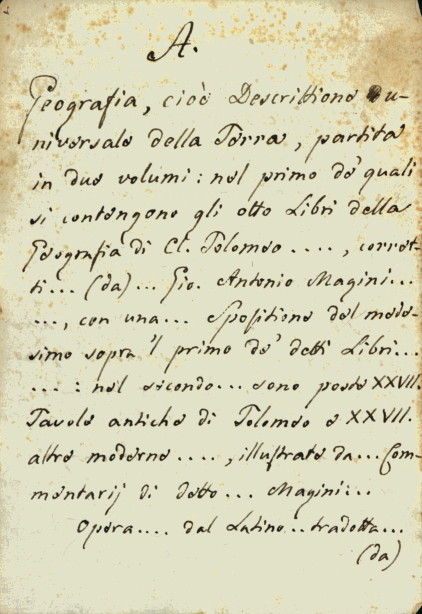 A.
Geografia, cioè Descrittione u-
niversale della Terra, partita
in due volumi: nel primo de' quali
si contengono gli otto Libri della
Geografia di Cl. Tolomeo ...., corret-
ti... (da)... Gio. Antonio Magini...
..., con una... Spositione del mede-
simo sopra 'l primo de' detti Libri...
...: nel secondo... sono poste XXVII.
Tavole antiche di Tolomeo e XXVII.
altre moderne ...., illustrate da... Com-
mentarij di detto... Magini...
Opera.... dal Latino... tradotta...
(da)